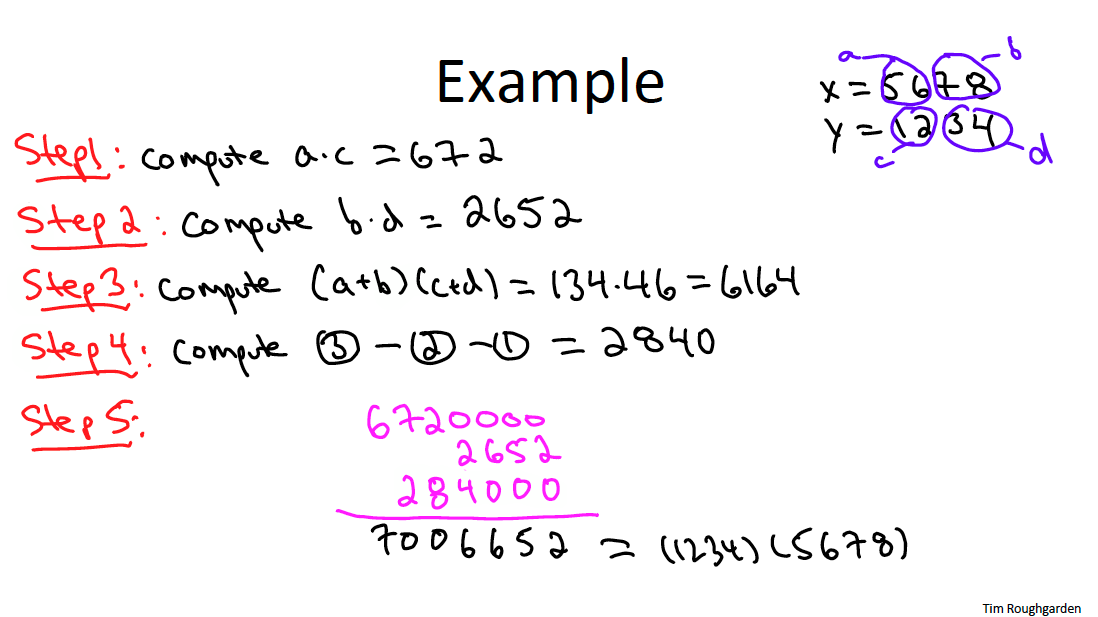 Example
a b
x = 5678
y = 1234
c d
Step1: compute a·c = 672
Step 2: compute b·d = 2652
Step3: compute (a+b)(c+d) = 134·46 = 6164
Step 4: compute ③ - ② - ① = 2840
Step 5:
6720000
2652
284000
7006652 = (1234)(5678)
Tim Roughgarden